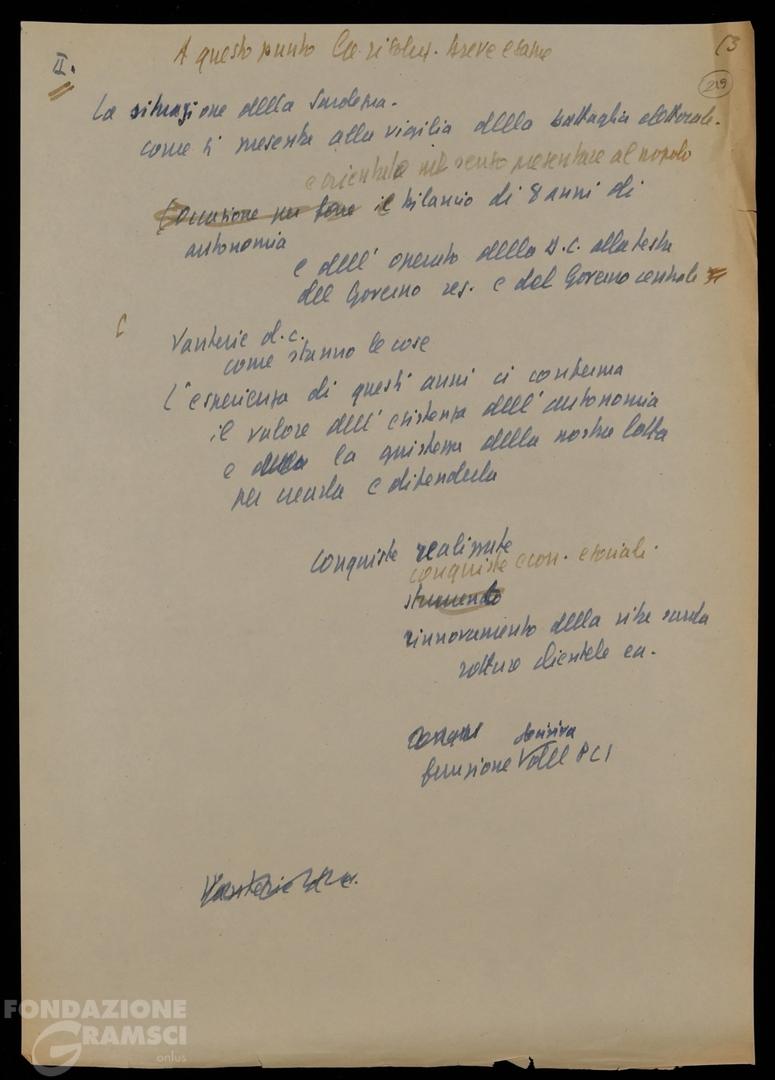 A questo punto la risoluz. breve esame
II.
(3
219
La situazione della Sardegna.
come si presenta alla vigilia della battaglia elettorale.
e orientata nel senso presentare al popolo
(Occasione per fare il bilancio di 8 anni di
autonomia
e dell'operato della d.c. alla testa
del Governo reg. e del Governo centrale
Vanterie d.c.
come stanno le cose
L'esperienza di questi anni ci conferma
il valore dell'esistenza dell'autonomia
e della la giustezza della nostra lotta
per crearla e difenderla
Conquiste realizzate
conquiste econ. e sociale.
strumento
rinnovamento della vita sarda
rotture clientele ecc.
decisiva
funzione del PCI
Vanterie d.c.
FONDAZIONE
GRAMSCI
onlus